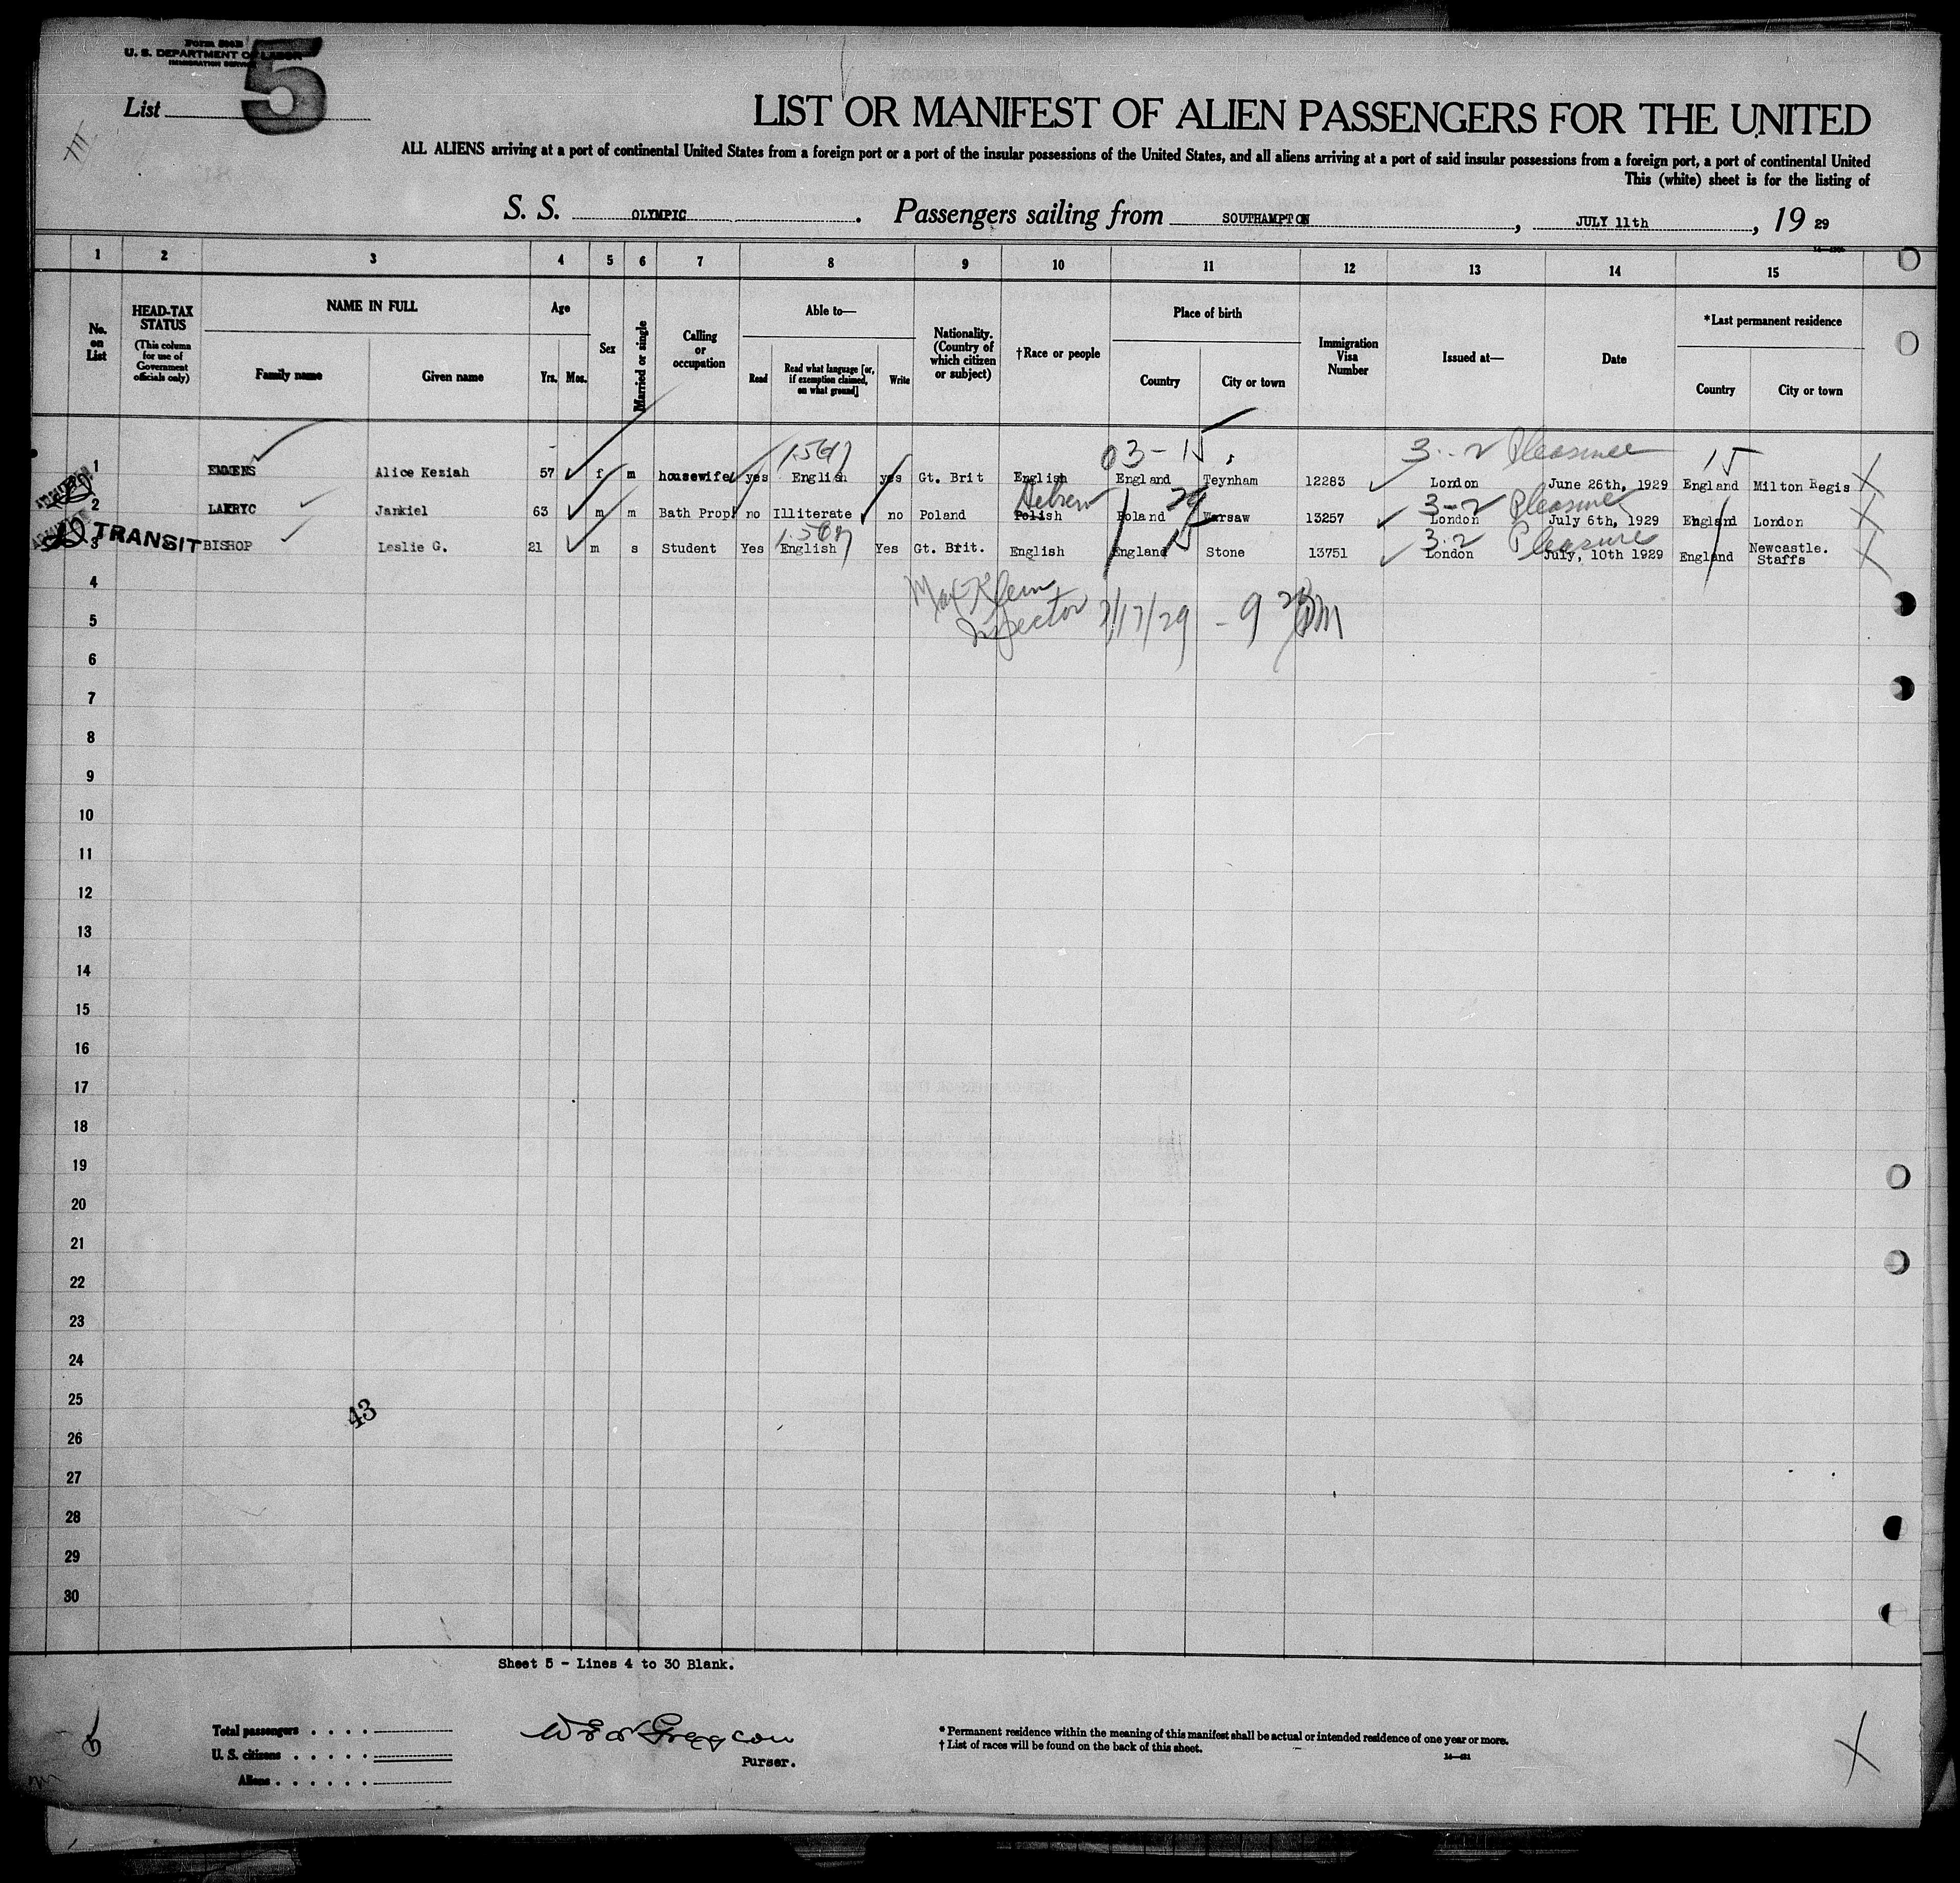 Form 500B
U. S. DEPARTMENT OF LABOR
IMMIGRATION SERVICE
List 5
LIST OR MANIFEST OF ALIEN PASSENGERS FOR THE UNITED
ALL ALIENS arriving at a port of continental United States from a foreign port or a port of the insular possessions of the United States, and all aliens arriving at a port of said insular possessions from a foreign port, a port of continental United
This (white) sheet is for the listing of
S. S. OLYMPIC. Passengers sailing from SOUTHAMPTON, JULY 11th, 19 29
1 2 3 4 5 6 7 8 9 10 11 12 13 14 15
No. on List
HEAD-TAX STATUS
(This column for use of Government officials only)
NAME IN FULL
Family name Given name
Age
Yrs. Mos.
Sex
Married or single
Calling or occupation
Able to—
Read Read what language [or, if exemption claimed, on what ground] Write
Nationality. (Country of which citizen or subject)
†Race or people
Place of birth
Country City or town
Immigration Visa Number
Issued at—
Date
*Last permanent residence
Country City or town
1567 03-15 3-2 Pleasure 15
1 EMMENS Alice Keziah 57 f m housewife yes English yes Gt. Brit English England Teynham 12283 London June 26th, 1929 England Milton Regis
Hebrew 29 3-2 Pleasure
2 Jankiel 63 m m Bath Prop no Illiterate no Poland Polish Poland Warsaw 13257 London July 6th, 1929 England London
1567 15 3-2 Pleasure
3 TRANSIT BISHOP Leslie G. 21 m s Student Yes English Yes Gt. Brit. English England Stone 13751 London July, 10th 1929 England Newcastle. Staffs
4
Max Klein
Inspector 7/17/29 - 9
5
6
7
8
9
10
11
12
13
14
15
16
17
18
19
20
21
22
23
24
25
43
26
27
28
29
30
Sheet 5 - Lines 4 to 30 Blank.
Total passengers
U. S. citizens
Aliens
Purser.
* Permanent residence within the meaning of this manifest shall be actual or intended residence of one year or more.
† List of races will be found on the back of this sheet.